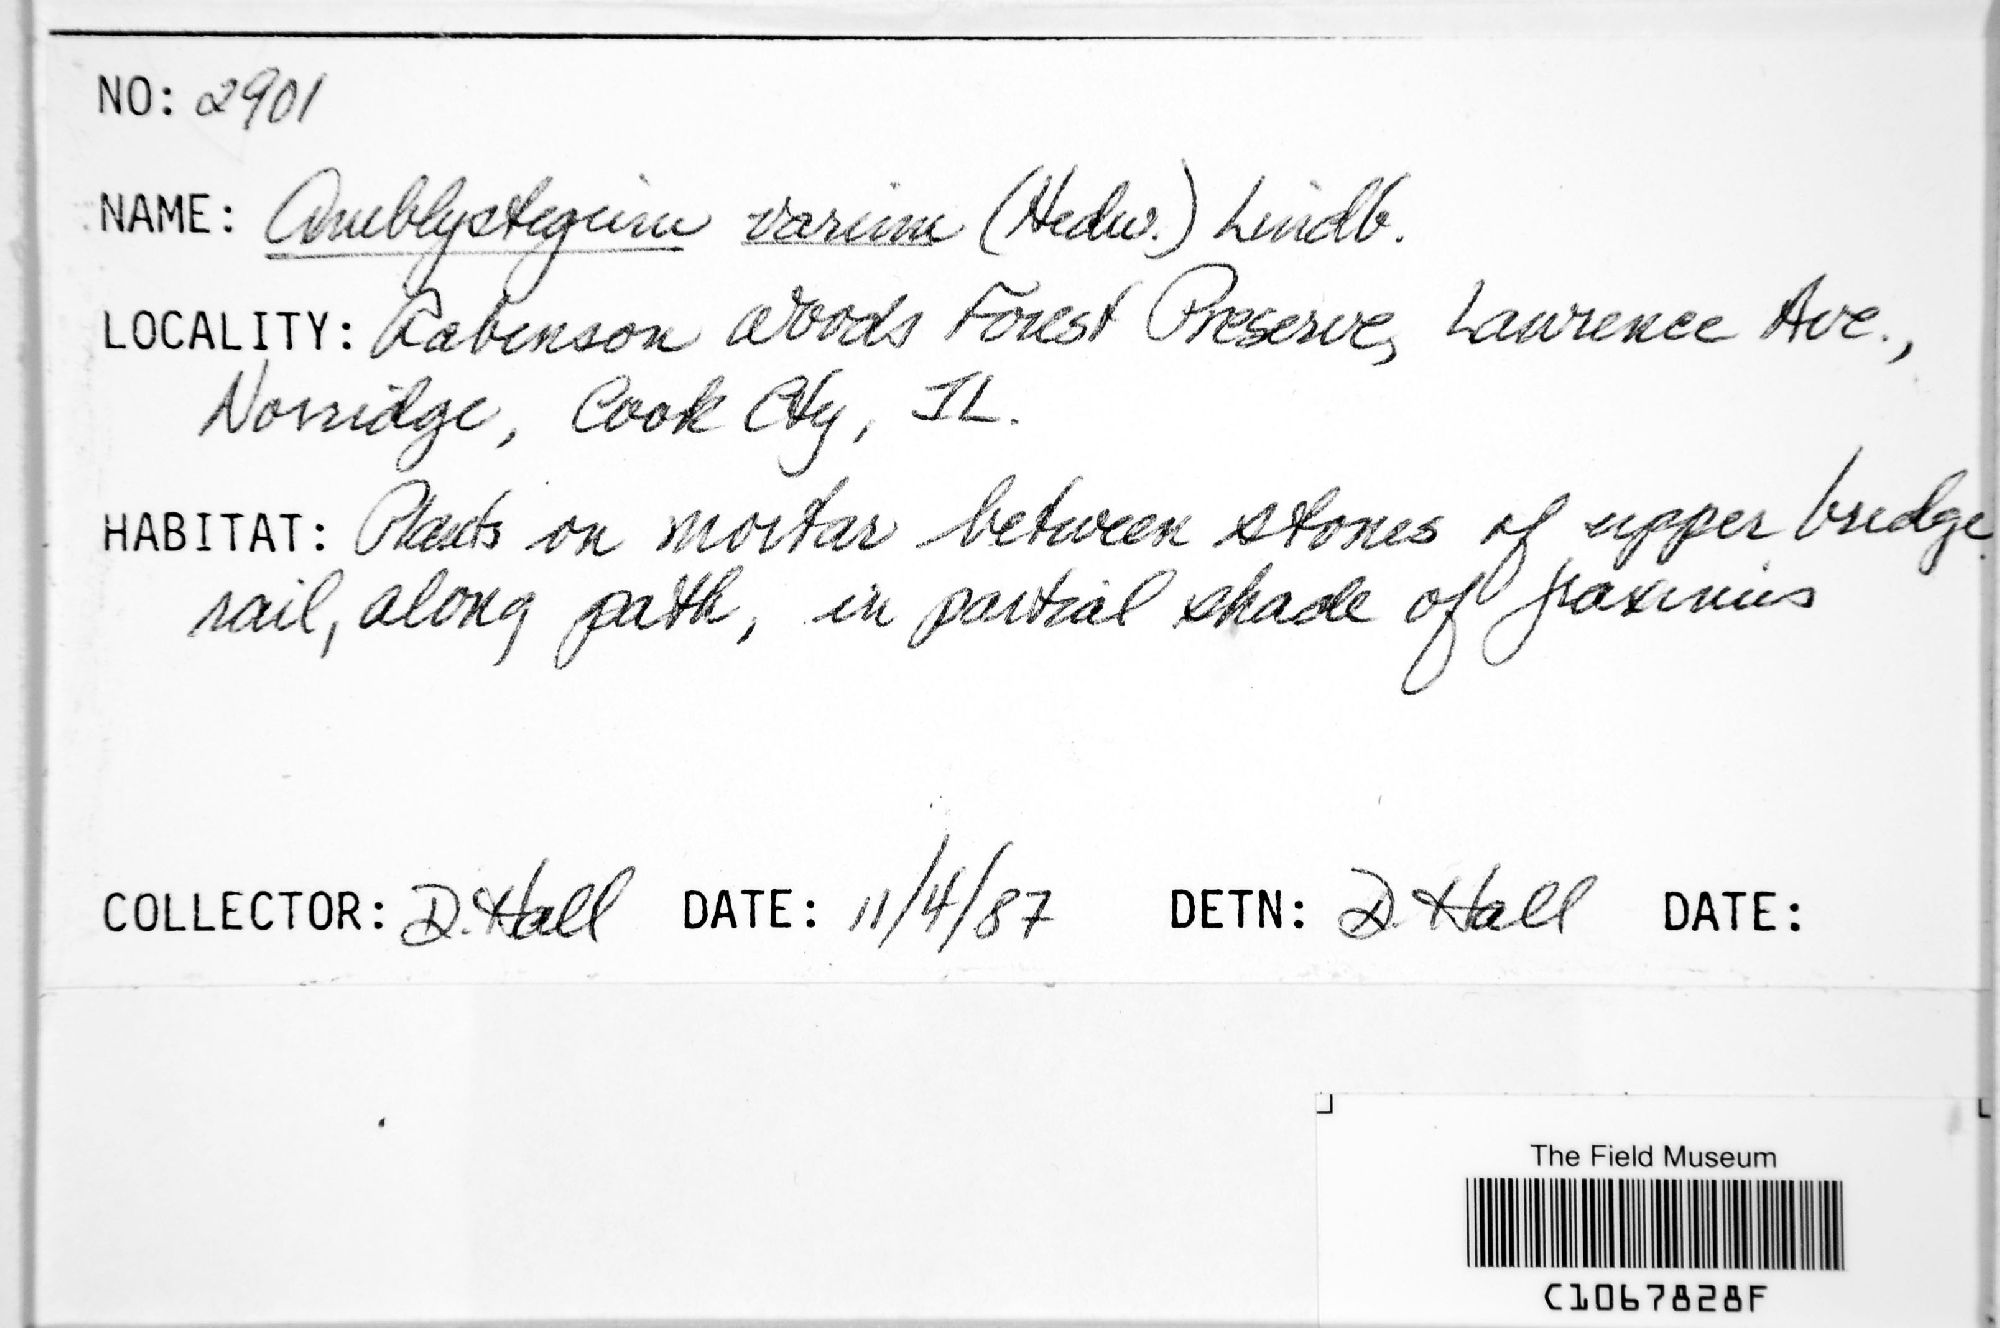 NO: 2901
NAME: Amblystegium varium (Hedw.) Lindb.
LOCALITY: Robinson Woods Forest Preserve, Lawrence Ave.,
Norridge, Cook Cty, IL.
HABITAT: Plants on mortar between stones of upper bridge
rail, along path, in partial shade of fraxinus
COLLECTOR: D. Hall DATE: 11/4/87 DETN: D. Hall DATE:
The Field Museum
C1067828F